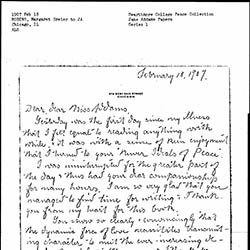 1907 Feb 18
ROBINS, Margaret Dreier to JA
Chicago, Il
ALS
Swarthmore College Peace Collection
Jane Addams Papers
Series 1
February 18, 1907.
Dear, dear Miss Addams
Yesterday was the first day since my illness
that I felt equal to reading anything worth
while & it was with a sense of keen enjoyment
that I turned to your "Newer Ideals of Peace."
I was uninterrupted for the greater part of
the day & thus had your dear companionship
for many hours. I am so very glad that you
managed to find time for writing & I thank
you from my heart for this book.
You know so clearly & convincingly that
the dynamic force of love
my character to meet the ever increasing